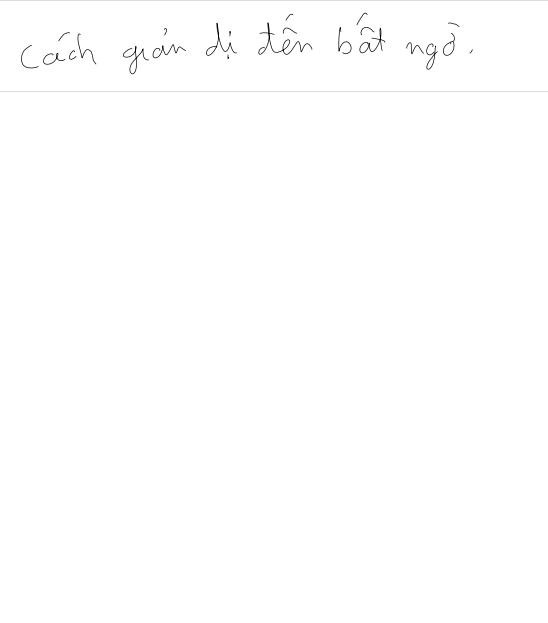 cách giản dị đến bất ngờ.